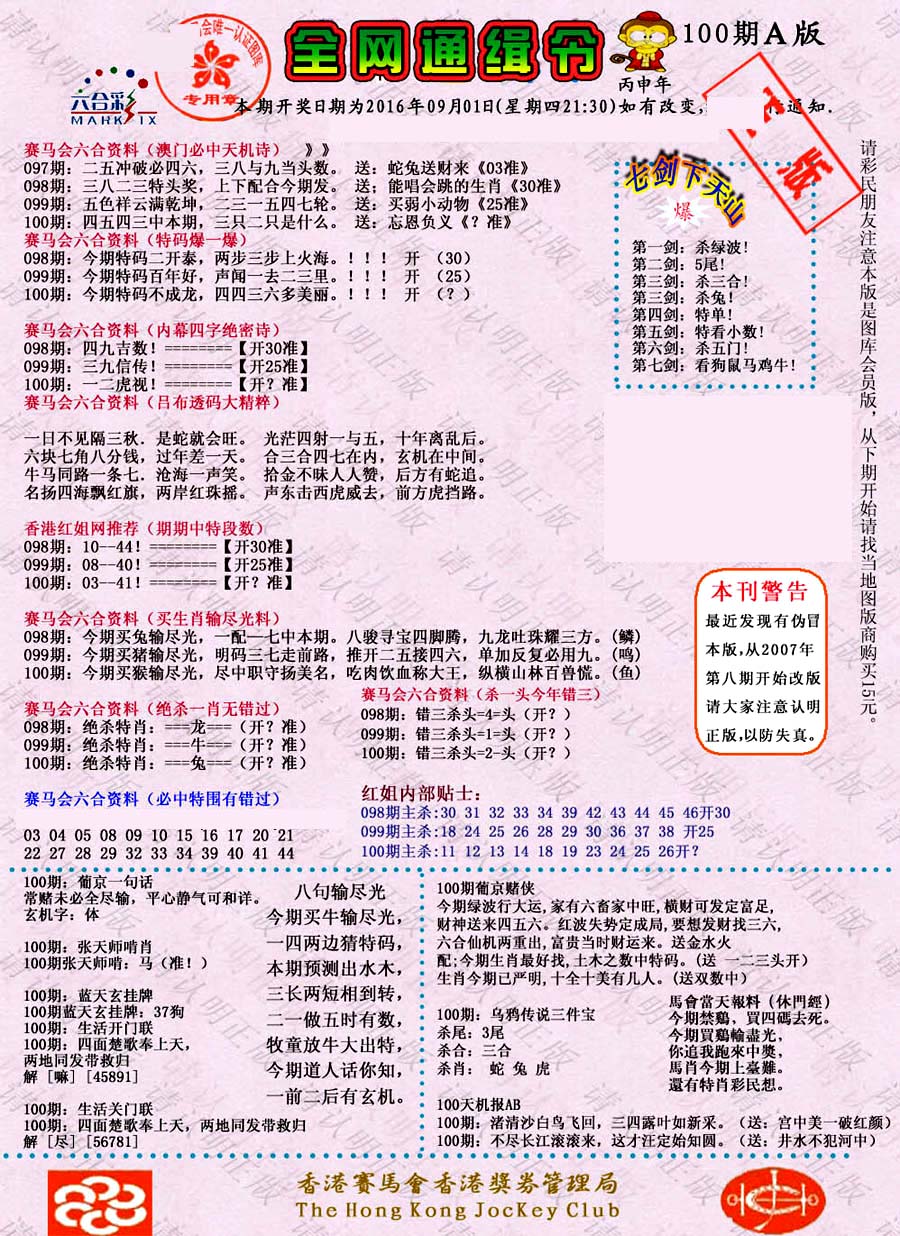 全网通缉令
100期A版
丙申年
六合彩
MARK SIX
专用章
本期开奖日期为2016年09月01日(星期四21:30)如有改变,
通知.
版
请彩民朋友注意本版是图库会员版，从下期开始请找当地图版商购买15元。
赛马会六合资料（澳门必中天机诗） 》》
097期：二五冲破必四六，三八与九当头数。 送：蛇兔送财来《03准》
098期：三八二三特头奖，上下配合今期发。 送；能唱会跳的生肖《30准》
099期：五色祥云满乾坤，二三一五四七轮。 送：买弱小动物《25准》
100期：四五四三中本期，三只二只是什么。 送：忘恩负义《？准》
赛马会六合资料（特码爆一爆）
098期：今期特码二开泰，两步三步上火海。！！！ 开 （30）
099期：今期特码百年好，声闻一去二三里。！！！ 开 （25）
100期：今期特码不成龙，四四三六多美丽。！！！ 开 （？）
赛马会六合资料（内幕四字绝密诗）
098期：四九吉数！========【开30准】
099期：三九信传！========【开25准】
100期：一二虎视！========【开？准】
赛马会六合资料（吕布透码大精粹）
一日不见隔三秋．是蛇就会旺。 光茫四射一与五，十年离乱后。
六块七角八分钱，过年差一天。 合三合四七在内，玄机在中间。
牛马同路一条七．沧海一声笑。 拾金不昧人人赞，后方有蛇追。
名扬四海飘红旗，两岸红珠摇。 声东击西虎威去，前方虎挡路。
香港红姐网推荐（期期中特段数）
098期：10--44！========【开30准】
099期：08--40！========【开25准】
100期：03--41！========【开？准】
赛马会六合资料（买生肖输尽光料）
098期：今期买兔输尽光，一配一七中本期。八骏寻宝四脚腾，九龙吐珠耀三方。(鳞)
099期：今期买猪输尽光，明码三七走前路，推开二五接四六，单加反复必用九。(鸣)
100期：今期买猴输尽光，尽中职守扬美名，吃肉饮血称大王，纵横山林百兽慌。(鱼)
赛马会六合资料（绝杀一肖无错过）
098期：绝杀特肖：===龙===（开？准）
099期：绝杀特肖：===牛===（开？准）
100期：绝杀特肖：===兔===（开？准）
赛马会六合资料（杀一头今年错三）
098期：错三杀头=4=头（开？）
099期：错三杀头=1=头（开？）
100期：错三杀头=2=头（开？）
赛马会六合资料（必中特围有错过）
03 04 05 08 09 10 15 16 17 20 21
22 27 28 29 32 33 34 39 40 41 44
红姐内部贴士：
098期主杀:30 31 32 33 34 39 42 43 44 45 46开30
099期主杀:18 24 25 26 28 29 30 36 37 38 开25
100期主杀:11 12 13 14 18 19 23 24 25 26开？
七剑下天山
爆
第一剑：杀绿波！
第二剑：5尾！
第三剑：杀三合！
第三剑：杀兔！
第四剑：特单！
第五剑：特看小数！
第六剑：杀五门！
第七剑：看狗鼠马鸡牛！
本刊警告
最近发现有伪冒
本版,从2007年
第八期开始改版
请大家注意认明
正版,以防失真。
100期：葡京一句话
常赌未必全尽输，平心静气可和详。
玄机字：体
100期：张天师啃肖
100期张天师啃：马（准！）
100期：蓝天玄挂牌
100期蓝天玄挂牌：37狗
100期：生活开门联
100期：四面楚歌奉上天，
两地同发带救归
解［嘛］［45891］
100期：生活关门联
100期：四面楚歌奉上天，两地同发带救归
解［尽］［56781］
八句输尽光
今期买牛输尽光，
一四两边猜特码，
本期预测出水木，
三长两短相到转，
二一做五时有数，
牧童放牛大出特，
今期道人话你知，
一前二后有玄机。
100期葡京赌侠
今期绿波行大运,家有六畜家中旺,横财可发定富足,
财神送来四五六。红波失势定成局,要想发财找三六,
六合仙机两重出,富贵当时财运来。送金水火
配;今期生肖最好找,土木之数中特码。(送 一二三头开)
生肖今期已严明,十全十美有几人。(送双数中)
100期：乌鸦传说三件宝
杀尾：3尾
杀合：三合
杀肖： 蛇 兔 虎
馬會當天報料（休門經）
今期禁鷄、買四碼去死。
今期買鷄輸盡光，
你追我跑來中獎，
馬肖今期上臺難。
還有特肖彩民想。
100天机报AB
100期：渚清沙白鸟飞回，三四露叶如新采。（送：宫中美一破红颜）
100期：不尽长江滚滚来，这才汪定始知圆。（送：井水不犯河中）
香港賽馬會香港獎券管理局
The Hong Kong JocKey Club